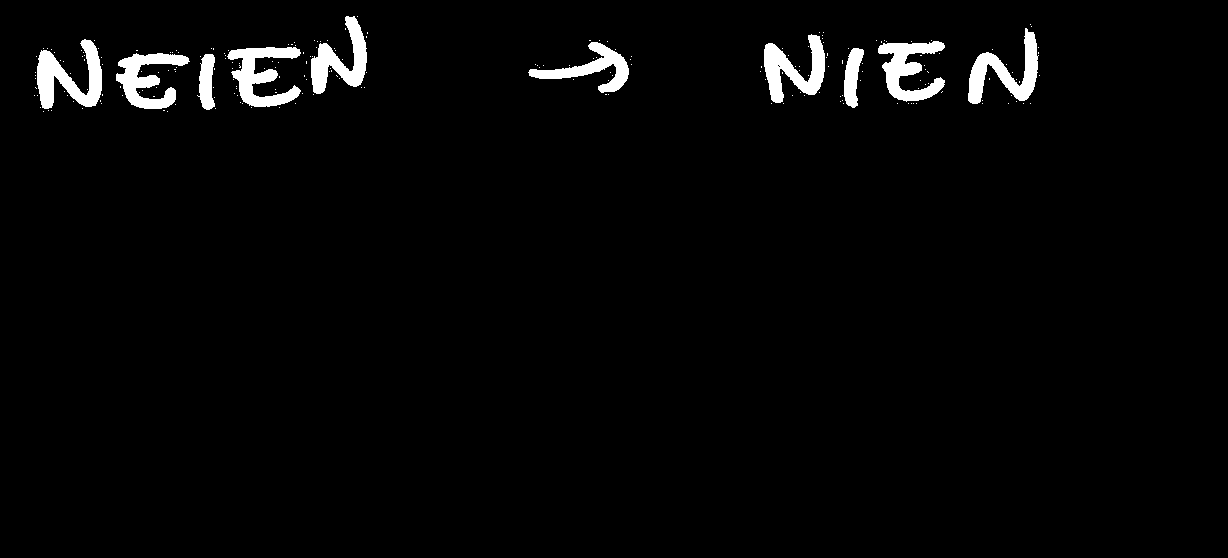 NEIEN → NIEN